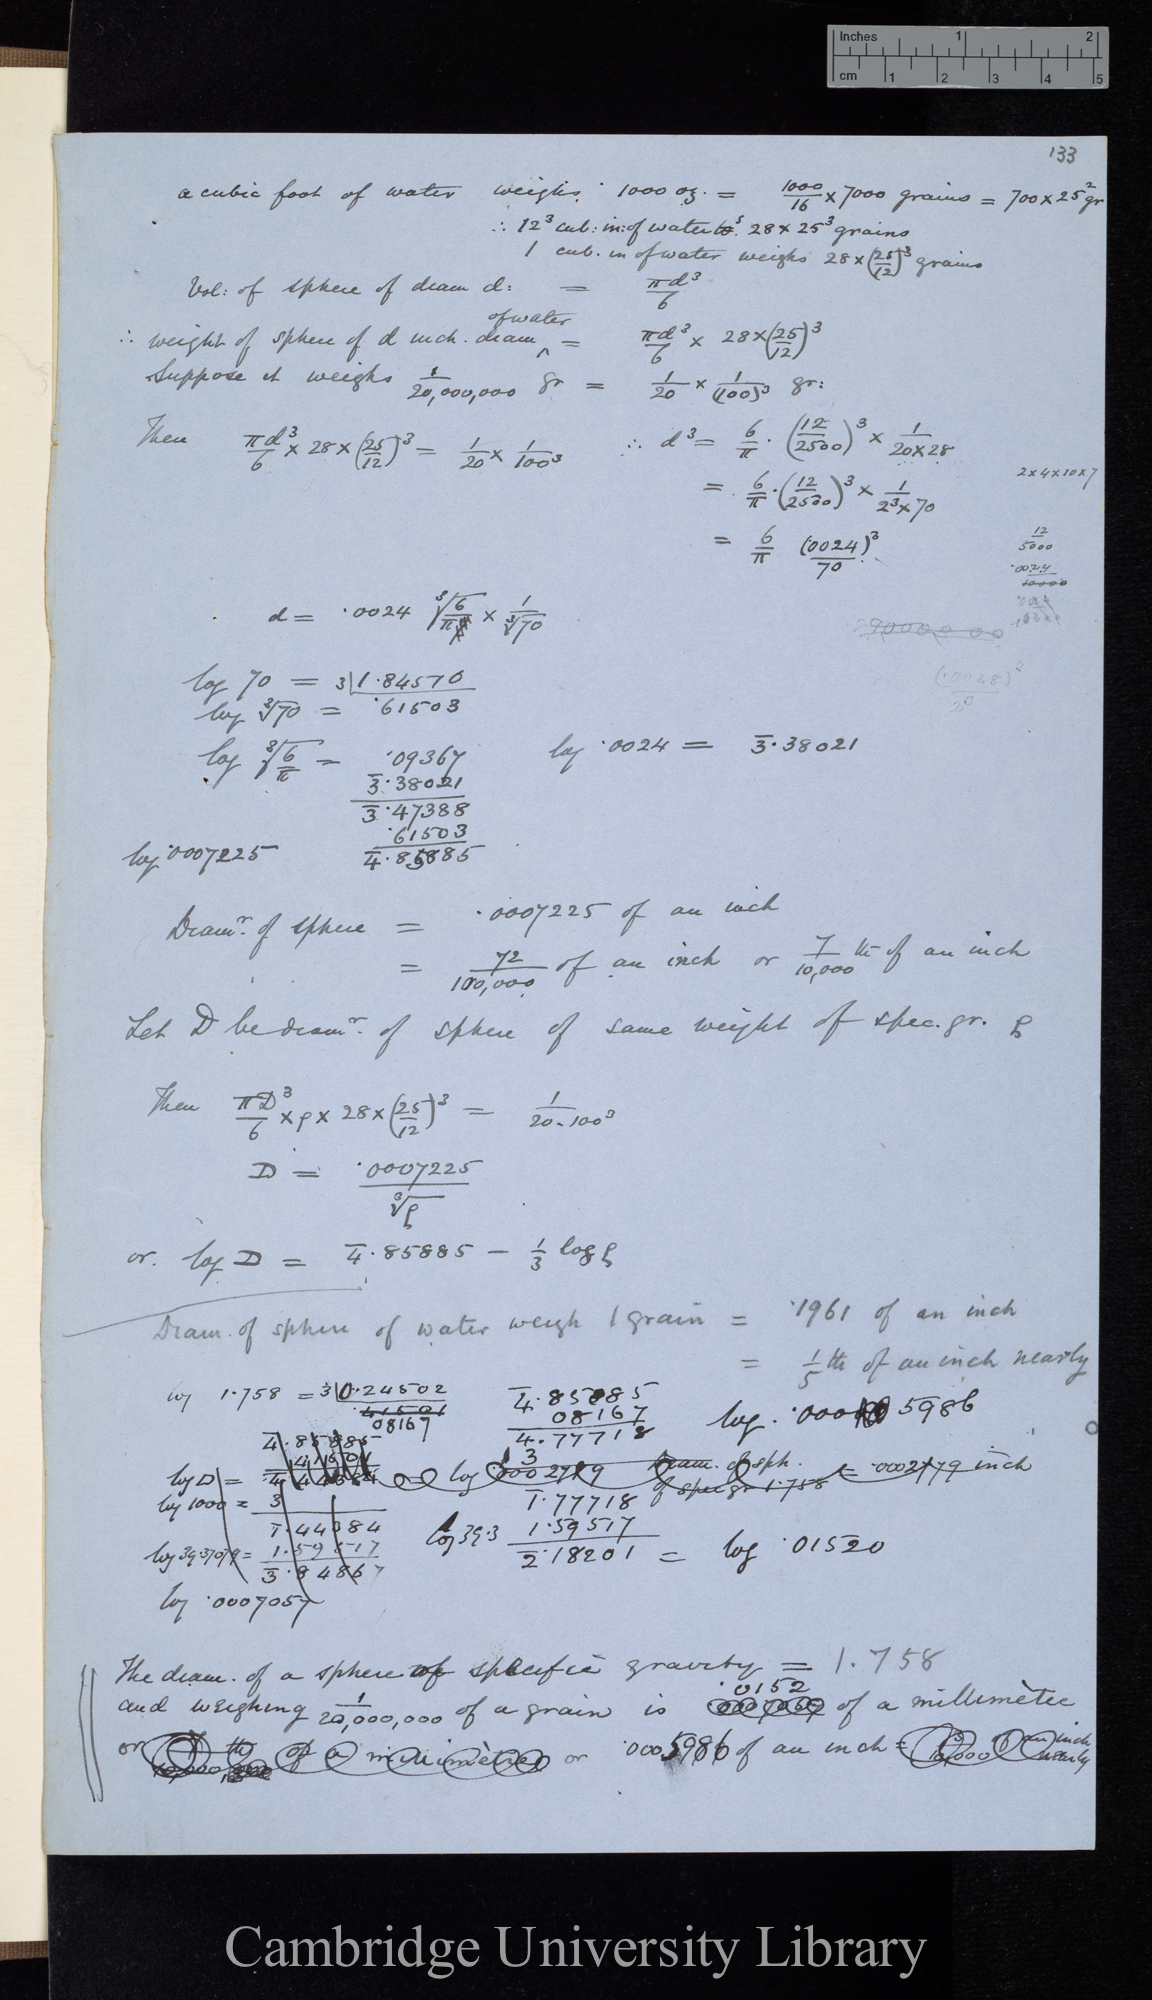 Inches 1 2
cm 1 2 3 4 5
133
a cubic foot of water weighs 1000 oz. = 1000/16 × 7000 grains = 700 × 25² gr
∴ 12³ cub: in: of water 28 × 25³ grains
1 cub. in of water weighs 28 × (25/12)³ grains
Vol: of sphere of diam d: = πd³/6
∴ weight of sphere of d inch. diam of water = πd³/6 × 28 × (25/12)³
Suppose it weighs 1/20,000,000 gr = 1/20 × 1/(100)³ gr:
Then πd³/6 × 28 × (25/12)³ = 1/20 × 1/100³ ∴ d³ = 6/π · (12/2500)³ × 1/20×28
= 6/π · (12/2500)³ × 1/2³×70
2×4×10×7
= 6/π (.0024)³/70
12/5000
.0024
d = .0024 ∛6/π × 1/∛70
(.0048)³/2³
log 70 = 3|1.84570
log ∛70 = .61503
log ∛6/π = .09367 log .0024 = 3̅.38021
3̅.38021
3̅.47388
.61503
log .0007225 4̅.85885
Diamʳ. of sphere = .0007225 of an inch
= 72/100,000 of an inch or 7/10,000 th of an inch
Let D be diamʳ. of sphere of same weight of spec. gr. ρ
Then πD³/6 × ρ × 28 × (25/12)³ = 1/20.100³
D = .0007225/∛ρ
or log D = 4̅.85885 − 1/3 log ρ
Diam. of sphere of water weigh 1 grain = .1961 of an inch
= 1/5 th of an inch nearly
log 1.758 = 3|0.24502 4̅.85885
08167 08167 log .0005986
4̅.77718
log D = log .0002779 Diam. of sph. of spec gr 1.758 = .0002779 inch
log 1000 = 3 3
1̅.44384 1̅.77718
log 39.37079 = 1.59517 log 39.3 1.59517
3̅.84867 2̅.18201 = log .01520
log .0007057
The diam. of a sphere of specific gravity = 1.758
and weighing 1/20,000,000 of a grain is .0152 of a millimètre
or of a millimètre or .0005986 of an inch = of an inch nearly
Cambridge University Library